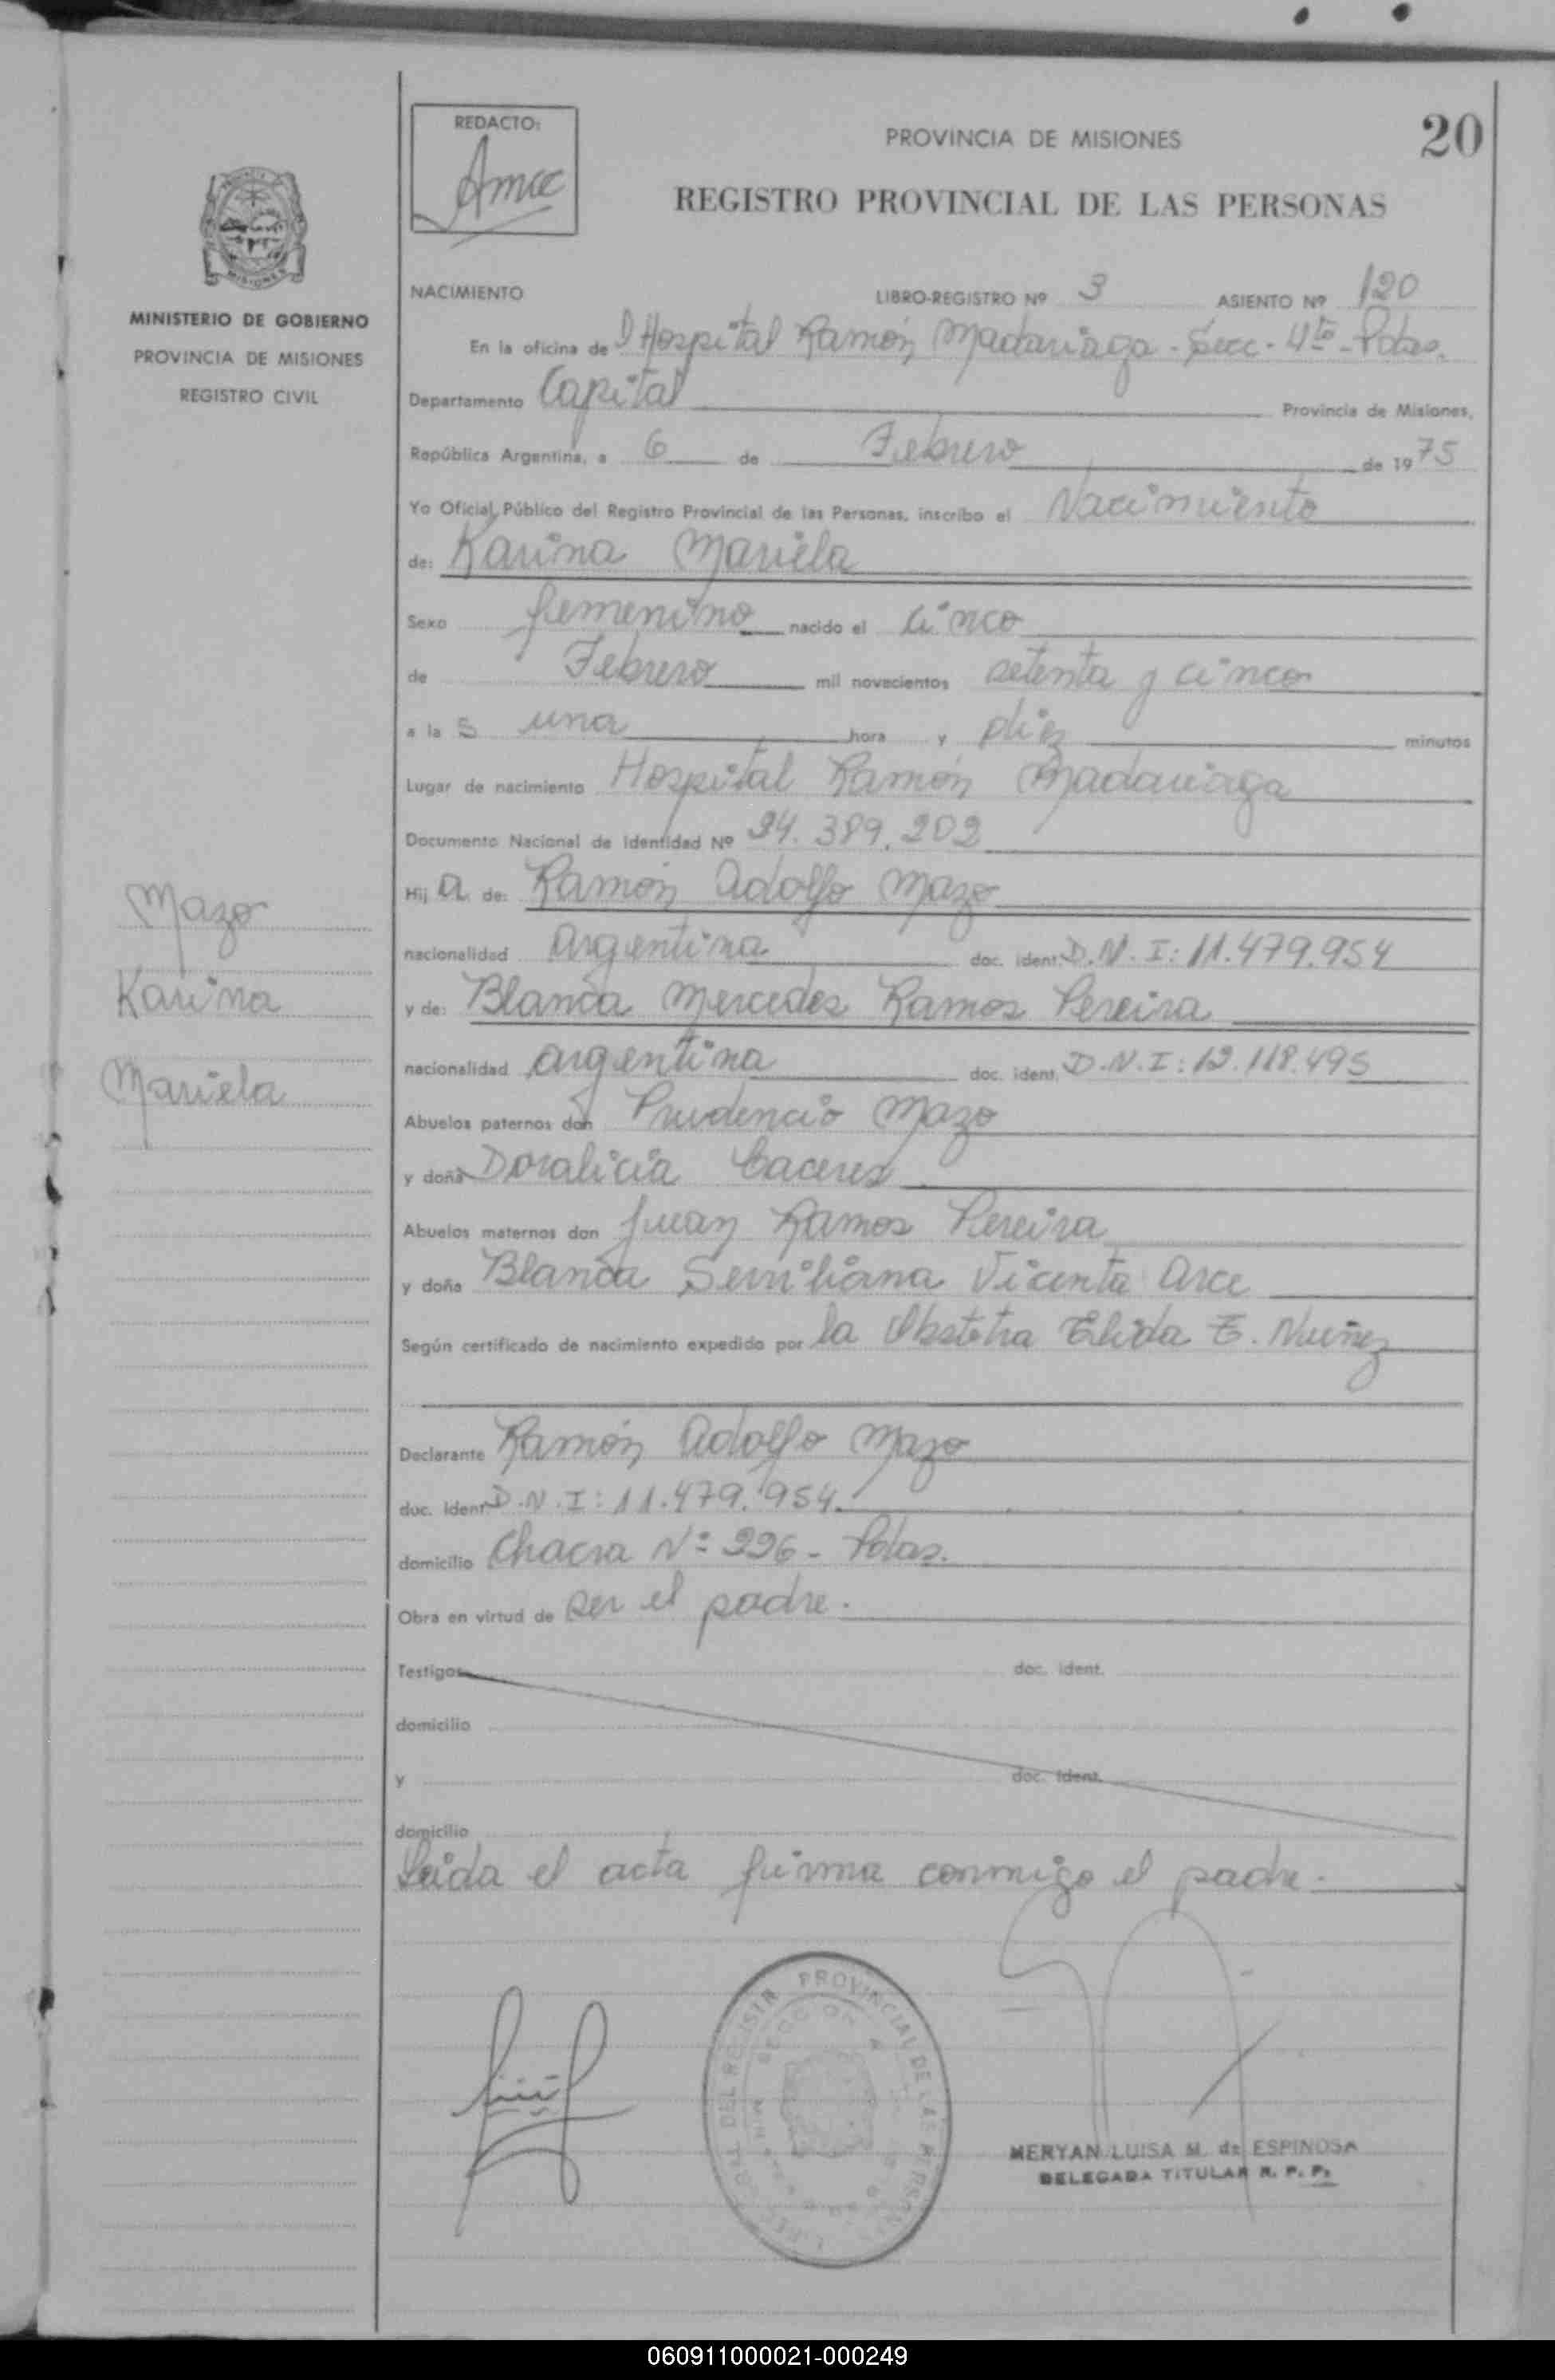 20
REDACTO:
PROVINCIA DE MISIONES
REGISTRO PROVINCIAL DE LAS PERSONAS
MINISTERIO DE GOBIERNO
PROVINCIA DE MISIONES
REGISTRO CIVIL
NACIMIENTO LIBRO-REGISTRO Nº 3 ASIENTO Nº 120
En la oficina de l Hospital Ramón Madariaga - Secc. 4ta - Pdas.
Departamento Capital Provincia de Misiones,
República Argentina, a 6 de Febrero de 1975
Yo Oficial Público del Registro Provincial de las Personas, inscribo el Nacimiento
de: Karina Mariela
Sexo femenino nacido el cinco
de Febrero mil novecientos setenta y cinco
a la s una hora y diez minutos
Lugar de nacimiento Hospital Ramón Madariaga
Documento Nacional de Identidad Nº 24.389.202
Hij a de: Ramón Adolfo Mazo
nacionalidad argentina doc. ident. D.N.I: 11.479.954
y de: Blanca Mercedes Ramos Pereira
nacionalidad argentina doc. ident. D.N.I: 12.118.495
Abuelos paternos don Prudencio Mazo
y doña Doralicia Caceres
Abuelos maternos don Juan Ramos Pereira
y doña Blanca Vicenta Arce
Según certificado de nacimiento expedido por la Obstetra Elida E. Nuñez
Declarante Ramón Adolfo Mazo
doc. ident. D.N.I: 11.479.954.
domicilio Chacra Nº 226 - Pdas.
Obra en virtud de ser el padre.
Testigos doc. ident.
domicilio
y doc. ident.
domicilio
Leida el acta firma conmigo el padre.
Mazo
Karina
Mariela
PROVINCIAL DE LAS PERSONAS
SECCION 4
MERYAN LUISA M. de ESPINOSA
DELEGADA TITULAR R. P. P.
060911000021-000249